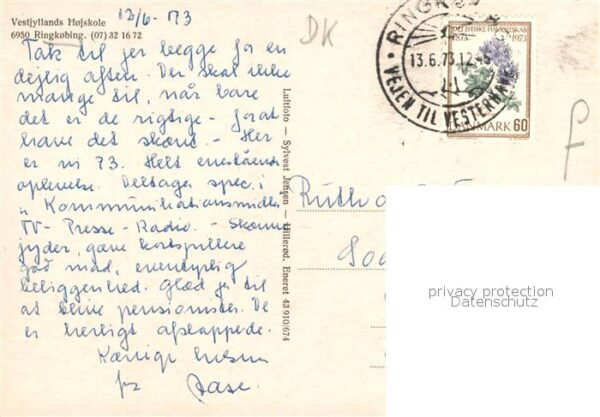 Vestjyllands Højskole
6950 Ringkøbing. (07) 32 16 72
12/6 - 73
DK
Tak til jer begge for en
dejlig aften. Der skal ikke
mange til, når bare
det er de rigtige - for at
have det skønt. - Her
er vi 73. Helt enestående
oplevelse. Deltager spec. i
"Kommunikationsmidler
TV - Presse - Radio. - Skønne
jyder, gæve kortspillere
god mad, eventyrlig
beliggenhed. Glæd jer til
at blive pensionister. De
er herligt afslappede.
Kærlige hilsner
fra Aase.
Luftfoto — Sylvest Jensen — Hillerød. Eneret 43 910/674
RINGKØ
13.6.73.12
VEJEN TIL VESTERHAVET
DET JYDSKE HAVESELSKAB
1873 1973
DANMARK 60
Ruth
privacy protection
Datenschutz